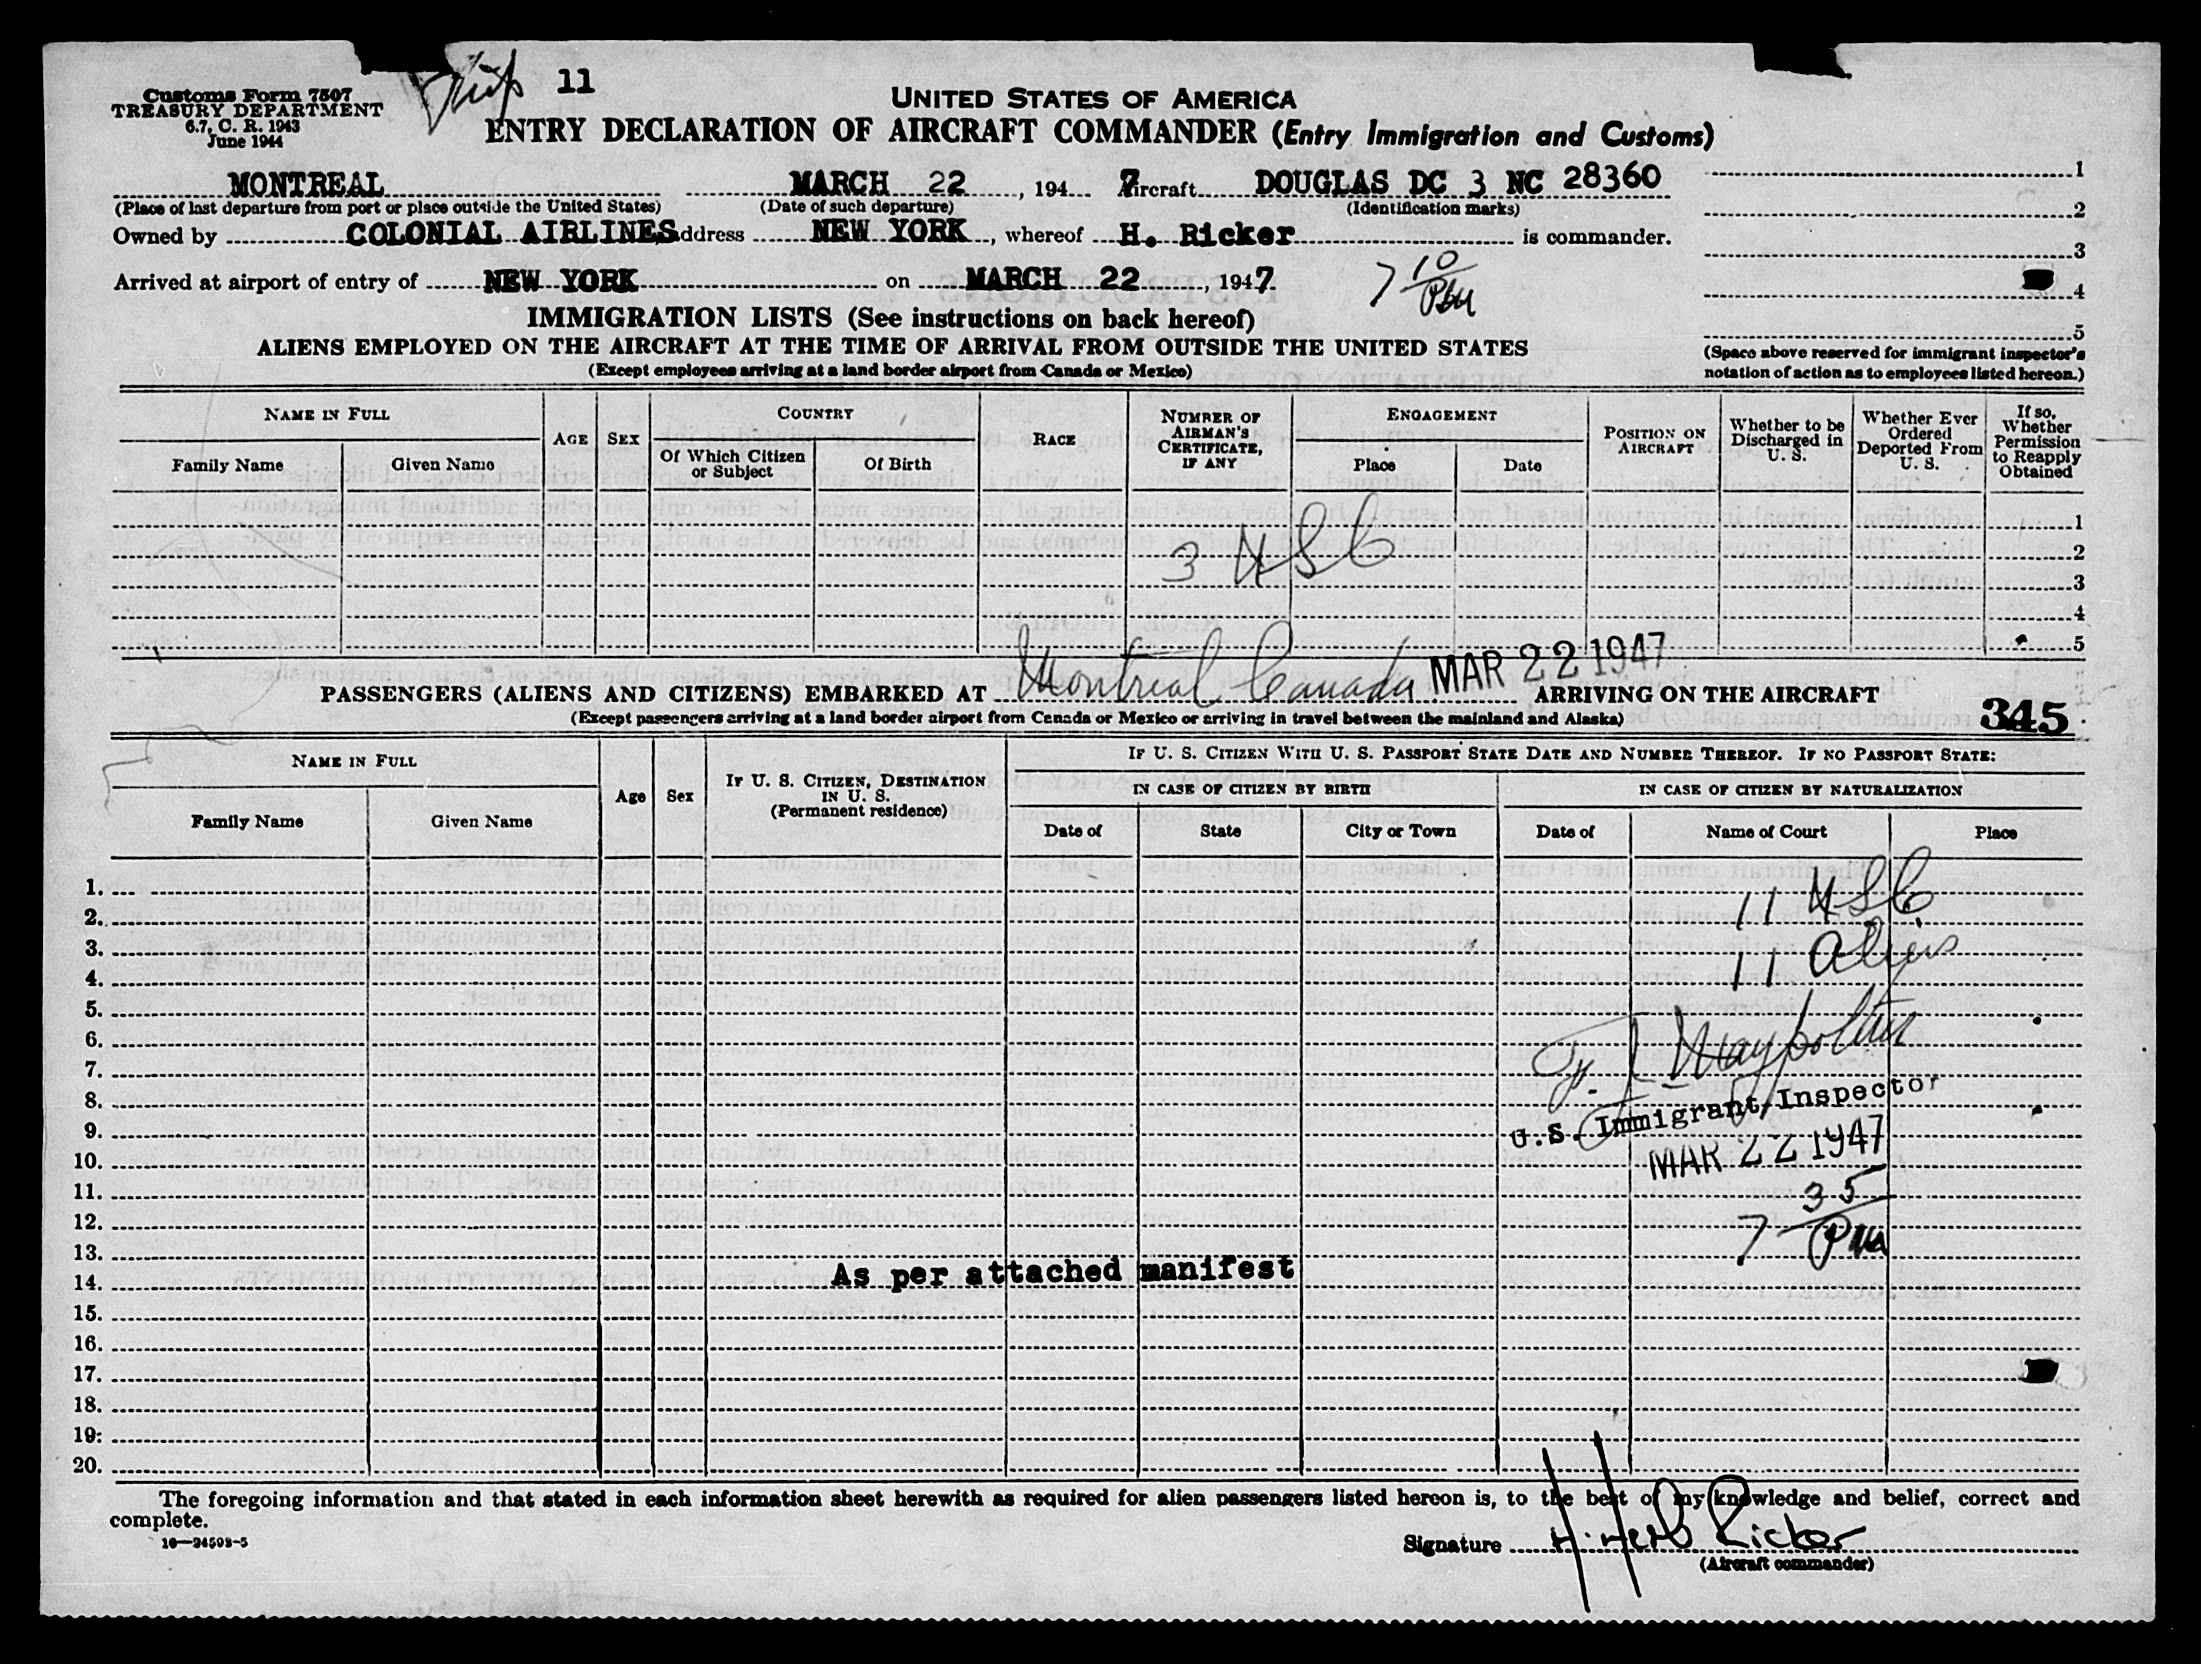 Customs Form 7507
TREASURY DEPARTMENT
6.7, C. R. 1943
June 1944
11
UNITED STATES OF AMERICA
ENTRY DECLARATION OF AIRCRAFT COMMANDER (Entry Immigration and Customs)
MONTREAL MARCH 22, 194 7 Aircraft DOUGLAS DC 3 NC 28360
(Place of last departure from port or place outside the United States) (Date of such departure) (Identification marks)
Owned by COLONIAL AIRLINES Address NEW YORK, whereof H. Ricker is commander.
Arrived at airport of entry of NEW YORK on MARCH 22, 1947. 7 10/PM
1
2
3
4
5
(Space above reserved for immigrant inspector's
notation of action as to employees listed hereon.)
IMMIGRATION LISTS (See instructions on back hereof)
ALIENS EMPLOYED ON THE AIRCRAFT AT THE TIME OF ARRIVAL FROM OUTSIDE THE UNITED STATES
(Except employees arriving at a land border airport from Canada or Mexico)
NAME IN FULL
Family Name Given Name
AGE SEX
COUNTRY
Of Which Citizen or Subject Of Birth
RACE
NUMBER OF AIRMAN'S CERTIFICATE, IF ANY
ENGAGEMENT
Place Date
POSITION ON AIRCRAFT
Whether to be Discharged in U. S.
Whether Ever Ordered Deported From U. S.
If so, Whether Permission to Reapply Obtained
1
2
3
4
5
3 USC
PASSENGERS (ALIENS AND CITIZENS) EMBARKED AT Montreal Canada MAR 22 1947 ARRIVING ON THE AIRCRAFT
(Except passengers arriving at a land border airport from Canada or Mexico or arriving in travel between the mainland and Alaska)
345
NAME IN FULL
Family Name Given Name
Age Sex
IF U. S. CITIZEN, DESTINATION IN U. S.
(Permanent residence)
IF U. S. CITIZEN WITH U. S. PASSPORT STATE DATE AND NUMBER THEREOF. IF NO PASSPORT STATE:
IN CASE OF CITIZEN BY BIRTH IN CASE OF CITIZEN BY NATURALIZATION
Date of State City or Town Date of Name of Court Place
1.
2. 11 USC
3.
4. 11 Aliens
5.
6.
7.
8.
9. U.S. Immigrant Inspector
10. MAR 22 1947
11.
12.
13. 7 35/PM
14. As per attached manifest
15.
16.
17.
18.
19.
20.
The foregoing information and that stated in each information sheet herewith as required for alien passengers listed hereon is, to the best of my knowledge and belief, correct and
complete.
16—24593-5
Signature H. Herb Ricker
(Aircraft commander)